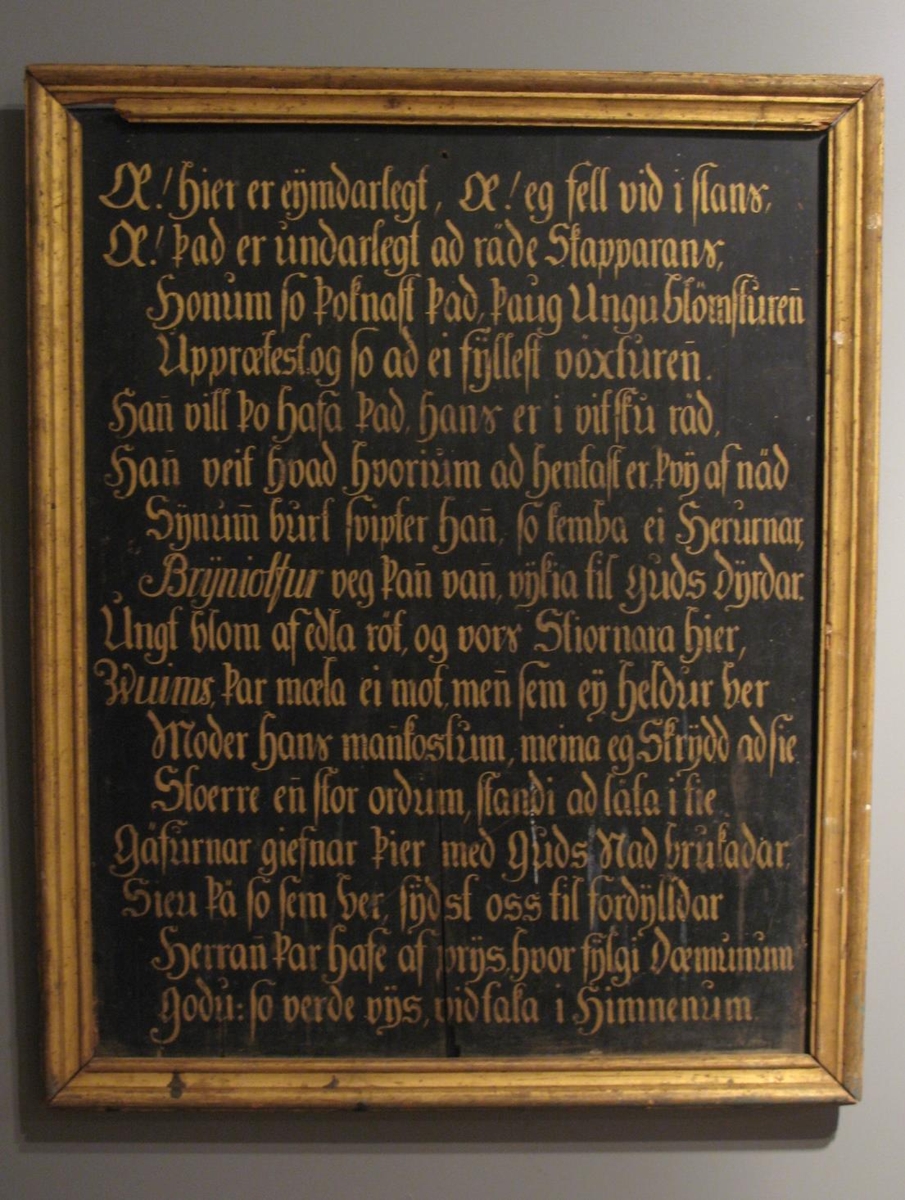 Æ! hier er eÿmdarlegt, Æ! eg fell vid i stans,
Æ! þad er undarlegt ad räde Skapparans,
Honum so þoknast þad, þaug Ungu blömsturen̄
Upprætest og so ad ei fÿllest vöxturen̄.
Han̄ vill þo hafa þad, hans er i vitsku räd,
Han̄ veit hvad hvorium ad hentast er, þvÿ af näd
Sÿnum̄ burt svipter han̄, so kemba ei Herurnar,
Brÿniolfur veg þan̄ van̄, vÿkia til Guds Dÿrdar.
Ungt blom af edla röt, og vors Stiornara hier,
Wiums, þar mæla ei mot, men̄ sem eÿ heldur ber
Moder hans man̄kostum, meina eg Skrÿdd ad sie
Stoerre en̄ stor ordum, standi ad läta i tie
Gäfurnar giefnar þier med Guds Nad brukadar,
Sieu þä so sem ber, sÿdst oss til fordÿlldar
Herran̄ þar hafe af prÿs, hvor fÿlgi Dæmunum
Godu: so verde vÿs, vid taka i Himnenum.